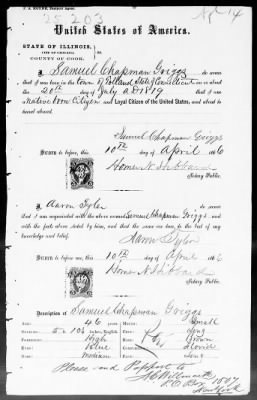 25203
No 4
United States of America.
STATE OF ILLINOIS,
COUNTY OF COOK.
I Samuel Chapman Griggs do swear
that I was born in the town of Tolland State of Connecticut on
the 20th day of July A.D. 1819
Native Born Citizen and Loyal Citizen of the United States, and about
to travel abroad.
Samuel Chapman Griggs
SWORN to before me, this 10th day of April 1866
Homer N. Hibbard
Notary Public.
I Aaron Tyler do swear
that I am acquainted with the above named Samuel Chapman Griggs, and
with the facts above stated by him, and that the same are true to the best of
my knowledge and belief.
Aaron Tyler
SWORN to before me, this 10th day of April 1866
Homer N. Hibbard
Notary Public.
Description of Samuel Chapman Griggs
Age: 46 years
Mouth: Small
Stature: 5 ft 10½ inches, English
Chin: Long
Forehead: High
Hair: Brown
Eyes: Blue
Complexion: Florid
Nose: Medium
Face: Long
Please send Passport to
P.O. Box 1507
New York